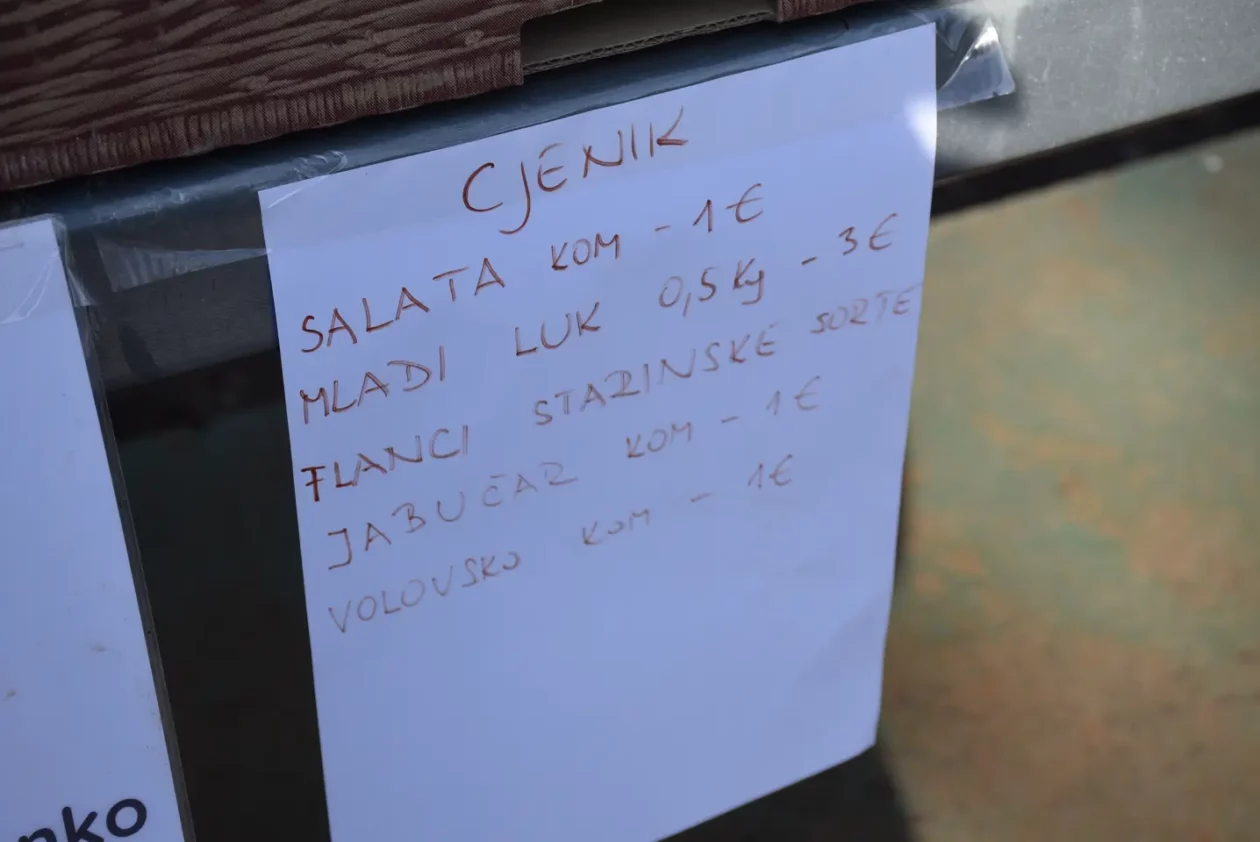 CJENIK
SALATA KOM - 1 €
MLADI LUK 0,5 Kg - 3 €
FLANCI STARINSKE SORTE
JABUČAR KOM - 1 €
VOLOVSKO KOM - 1 €
nko